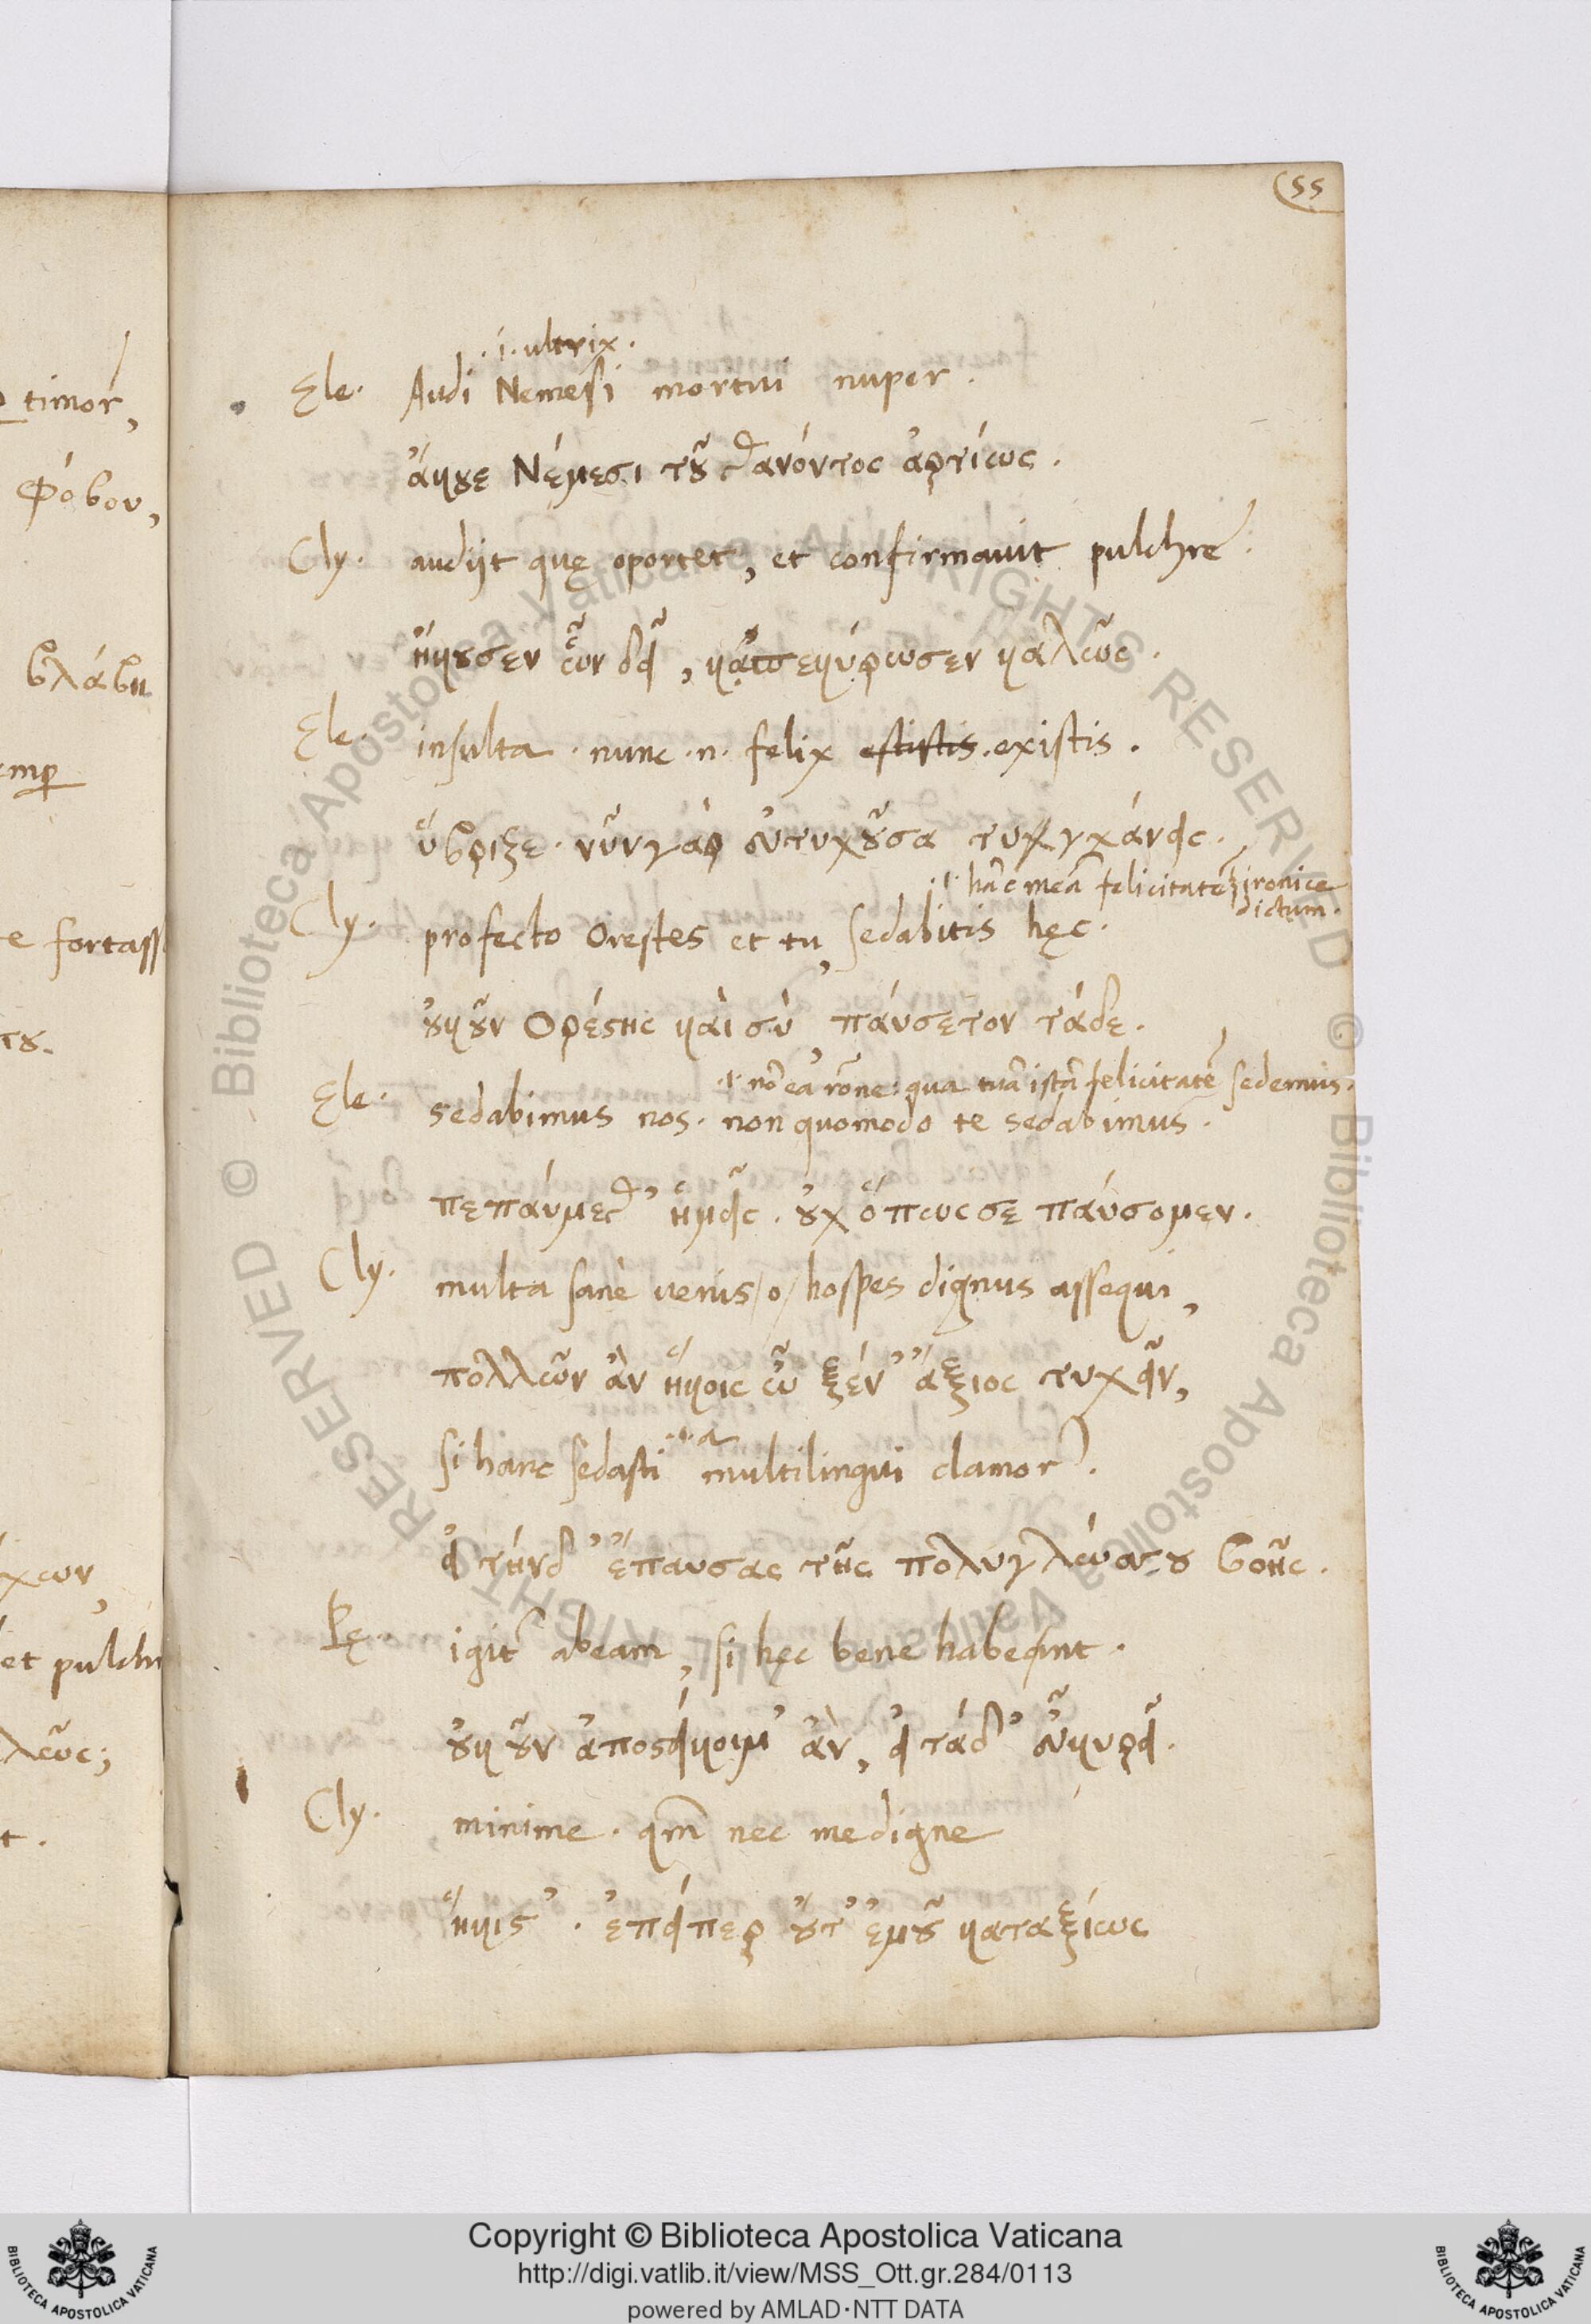 55
.i. ultrix.
Ele. Audi Nemesi mortui nuper.
ἄκουε Νέμεσι τοῦ θανόντος ἀρτίως.
Cly. audijt quę oportet, et confirmavit pulchre.
ἤκουσεν ὧν δεῖ, κἀπεκύρωσεν καλῶς.
Ele. insulta . nunc .n. felix estistis . existis.
ὕβριζε . νῦν γὰρ εὐτυχοῦσα τυγχάνεις.
.i. hãc meã felicitatẽ ironice
dictum.
Cly. profecto Orestes et tu, sedabitis hęc.
οὐκοῦν Ὀρέστης καὶ σὺ, παύσετον τάδε.
.i. nõ ea rõne: qua tuã istã felicitatẽ sedemus.
Ele. sedabimus nos. non quomodo te sedabimus.
πεπαύμεθ' ἡμεῖς . οὐχ ὅπως σε παύσομεν.
Cly. multa sanè venis /o/ hospes dignus assequi,
πολλῶν ἂν ἥκοις ὦ ξέν' ἄξιος τυχεῖν,
.i. a
si hanc sedasti multilingui clamor.
εἰ τήνδ' ἔπαυσας τῆς πολυγλώσσου βοῆς.
Pę. igit abeam, si hęc bene habeant.
οὐκοῦν ἀποστείχοιμ' ἂν, εἰ τάδ' εὖ κυρεῖ.
Cly. minime . qm̃ nec me digne
ἥκιστ' . ἐπείπερ οὔτ' ἐμοῦ καταξίως
timor,
φόβου,
βλάβη
emp
e fortass
του.
χων,
et pulchr
λῶς;
t.
Copyright © Biblioteca Apostolica Vaticana
http://digi.vatlib.it/view/MSS_Ott.gr.284/0113
powered by AMLAD·NTT DATA